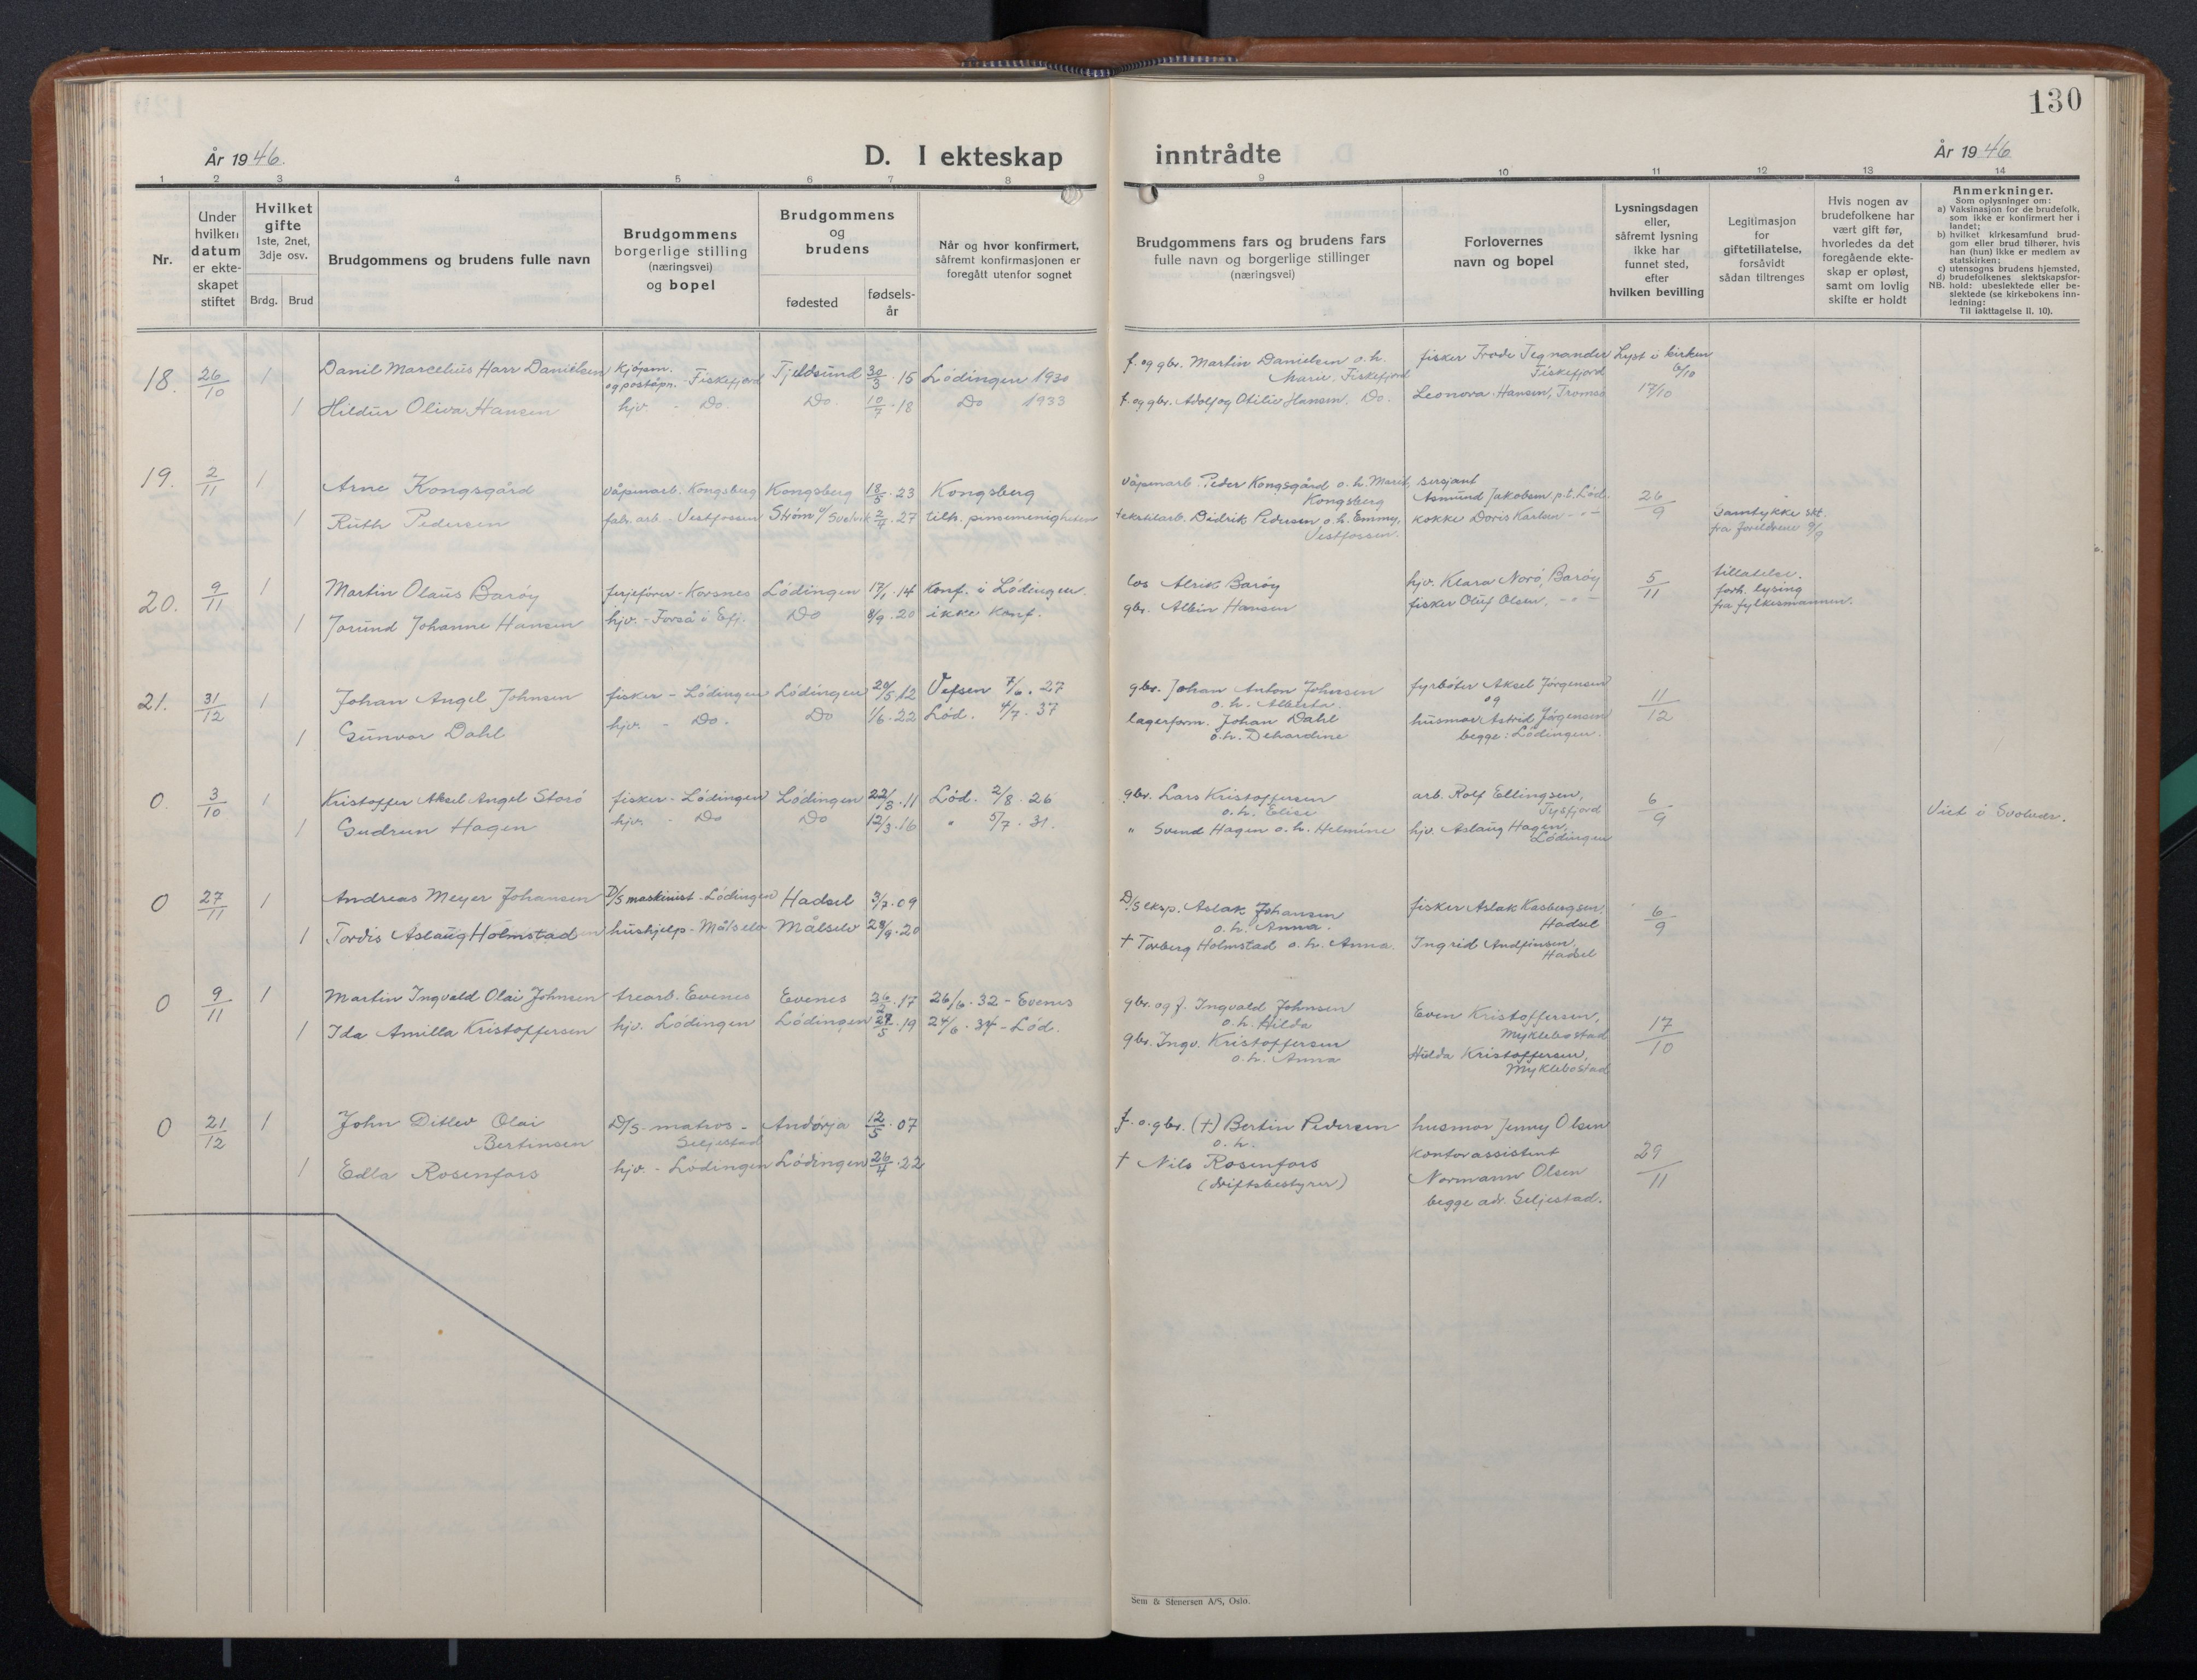 130
År 1946.
D. I ekteskap
inntrådte
År 1946
1 2 3 4 5 6 7 8 9 10 11 12 13 14
Nr.
Under
hvilken
datum
er ekte-
skapet
stiftet
Hvilket
gifte
1ste, 2net,
3dje osv.
Brdg. Brud
Brudgommens og brudens fulle navn
Brudgommens
borgerlige stilling
(næringsvei)
og bopel
Brudgommens
og
brudens
fødested
fødsels-
år
Når og hvor konfirmert,
såfremt konfirmasjonen er
foregått utenfor sognet
Brudgommens fars og brudens fars
fulle navn og borgerlige stillinger
(næringsvei)
Forlovernes
navn og bopel
Lysningsdagen
eller,
såfremt lysning
ikke har
funnet sted,
efter
hvilken bevilling
Legitimasjon
for
giftetillatelse,
forsåvidt
sådan tiltrenges
Hvis nogen av
brudefolkene har
vært gift før,
hvorledes da det
foregående ekte-
skap er opløst,
samt om lovlig
skifte er holdt
Anmerkninger.
Som oplysninger om:
a) Vaksinasjon for de brudefolk,
som ikke er konfirmert her i
landet;
b) hvilket kirkesamfund brud-
gom eller brud tilhører, hvis
han (hun) ikke er medlem av
statskirken;
c) utensogns brudens hjemsted,
d) brudefolkenes slektskapsfor-
NB. hold: ubeslektede eller be-
slektede (se kirkebokens inn-
ledning:
Til iakttagelse II. 10).
18. 26/10 1 Danil Marcelius Harr Daniélsen Kjøpm. og poståpn. - Fiskefjord Tjeldsund 30/3 . 15 Lødingen 1930
1 Hildur Oliva Hansen hjv. - Do. Do. 10/7 . 18 Do 1933
f. og gbr. Martin Danielsen o.h.
Marie, Fiskefjord
f. og gbr. Adolf og Otilie Hansen, Do.
fisker Frode Tegnander
Fiskefjord
Leonora Hansen, Tromsø
Lyst i kirken
6/10
17/10
19. 2/11 1 Arne Kongsgård våpenarb. Kongsberg Kongsberg 18/5 . 23 Kongsberg
1 Ruth Pedersen fabr. arb. - Vestfossen Strøm p/ Svelvik 2/7 . 27 tilh. pinsemenigheten
våpenarb. Peder Kongsgård o.h. Marit,
Kongsberg
tekstilarb. Didrik Pedersen o.h. Emmy,
Vestfossen.
sersjant
Asmund Jakobsen p.t. Lød.
kokke Doris Karlsen - " -
26/9
Samtykke skt.
fra foreldrene 9/9
20. 9/11 1 Martin Olaus Barøy ferjefører - Korsnes Lødingen 17/1 . 14 Konf. i Lødingen.
1 Jorund Johanne Hansen hjv. - Forså i Efj. Do 8/9 . 20 ikke konf.
los Alrik Barøy
gbr. Albin Hansen
hjv. Klara Norø, Barøy
fisker Oluf Olsen, - " -
5/11
tillatelse.
forh. lysing
fra fylkesmannen.
21. 31/12 1 Johan Angel Johnsen fisker - Lødingen Lødingen 20/5 . 12 Vefsen 7/6 . 27
1 Gunvor Dahl hjv. - Do. Do 1/6 . 22 Lød. 4/7 . 37
gbr. Johan Anton Johnsen
o.h. Alberta.
lagerform. Johan Dahl
o.h. Dehardine
fyrbøter Aksel Jørgensen
og
husmor Astrid Jørgensen
begge: Lødingen.
11/12
0. 3/10 1 Kristoffer Aksel Angel Storø fisker - Lødingen Lødingen 22/3 . 11 Lød. 2/8 . 26
1 Gudrun Hagen hjv. - Do Do 12/3 . 16 " 5/7 . 31.
gbr. Lars Kristoffersen
o.h. Elise
" Svend Hagen o.h. Helmine
arb. Rolf Ellingsen,
Tysfjord
hjv. Aslaug Hagen,
Lødingen
6/9
Viet i Svolvær.
0 27/11 1 Andreas Meyer Johansen D/S maskinist - Lødingen Hadsel 3/7 . 09
1 Tordis Aslaug Holmstad hushjelp - Målselv Målselv 28/9 . 20
D/S eksp. Aslak Johansen
o.h. Anna.
† Torberg Holmstad o.h. Anna.
fisker Aslak Kasbergsen,
Hadsel
Ingrid Andfinsen,
Hadsel
6/9
0 9/11 1 Martin Ingvald Olai Johnsen trearb. Evenes Evenes 26/2 . 17 26/6 . 32 - Evenes
1 Ida Amilla Kristoffersen hjv. Lødingen Lødingen 27/5 . 19 24/6 . 34 - Lød.
gbr. og f. Ingvald Johnsen
o.h. Hilda
gbr. Ingv. Kristoffersen
o.h. Anna
Even Kristoffersen,
Myklebostad
Hilda Kristoffersen,
Myklebostad
17/10
0 21/12 1 John Ditlev Olai
Bertinsen D/S - matros -
Seljestad Andørja 12/5 . 07
1 Edla Rosenfors hjv - Lødingen Lødingen 26/4 . 22
f. o. gbr. (†) Bertin Pedersen
o.h.
† Nils Rosenfors
(driftsbestyrer)
husmor Jenny Olsen
kontorassistent
Normann Olsen
begge adr. Seljestad.
29/11
Sem & Stenersen A/S, Oslo.